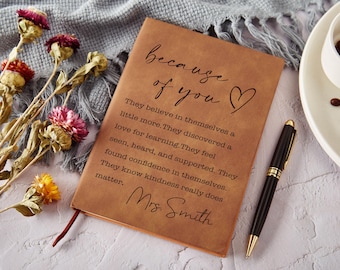 because
of you
They believe in themselves a
little more. They discovered a
love for learning. They feel
seen, heard, and supported. They
found confidence in themselves.
They know kindness really does
matter.
Mrs. Smith